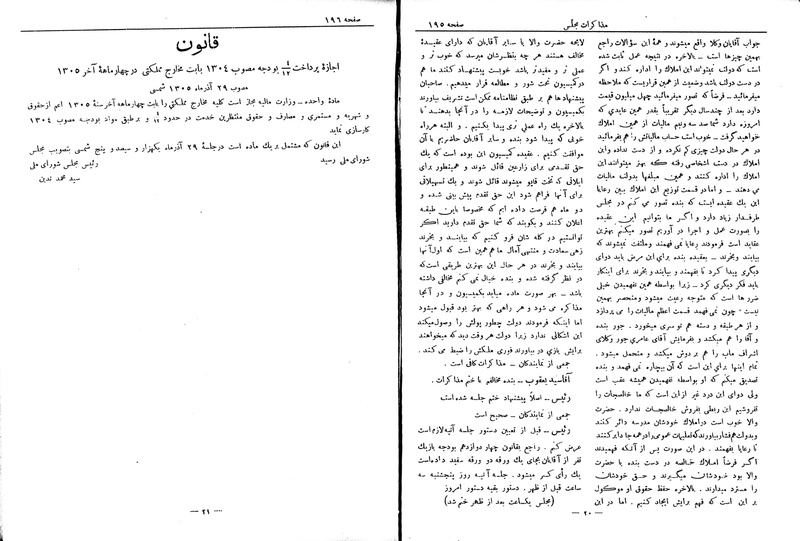 صفحه ۱۹۵
مذاکرات مجلس
جواب آقایان وکلا واقع میشوند و همهٔ این سؤالات راجع
بهمین چیزها است ــ بالاخره در نتیجه عمل ثابت شده
است که دولت نمیتواند این املاک را اداره کند و اگر
در دست دولت باشد وضعیت از همین قرار است که ملاحظه
میفرمائید ــ فرضاً که تصور میفرمائید چهل میلیون قیمت
دارد بعد از چند سال دیگر تقریباً بقدر همین عایدی که
امروزه دارد شما صد و نیم مالیات از همین املاک
خواهید گرفت ــ خوب است حساب مالیاتش را هم بفرمائید
در هر حال دولت چیزی کم نکرده و از دست نداده و این
املاک در دست اشخاصی رفته که بهتر میتوانند این
املاک را اداره کنند و همین مبلغها بدولت مالیات
می دهند ــ و اما در قسمت توزیع این املاک ببین رعایا
این یک عقیده ایست که بنده تصور می کنم در مجلس
طرفدار زیاد دارد و اگر ما بتوانیم این عقیده
را بصورت عمل و اجرا در آوریم تصور میکنم بهترین
عقاید است فرمودند رعایا نمی فهمند و ملتفت نمیشوند که
بیایند و بخرند ــ بعقیده بنده برای این مرض باید دوای
دیگری پیدا کرد تا بفهمند و بیایند و بخرند برای اینکار
باید فکر دیگری کرد ــ زیرا بواسطه همین نفهمیدن خیلی
ضررها است که متوجه رعیت میشود و منحصر بهمین
نیست ــ چون نمی فهمد قسمت اعظم مالیات را می پردازد
و از هر طبقه و دسته هم تو سری میخورد . جور بنده
و آقا را هم میکشد و بفرمایش آقای عامری جور وکلای
اشراف مآب را هم بر دوش میکشد و متحمل میشود .
تمام اینها برای این است که آن بیچاره نمی فهمد و بنده
تصدیق میکنم که او بواسطه نفهمیدن همیشه عقب است
ولی دوای این درد غیر از این است که ما خالصجات را
نفروشیم این ربطی بفروش خالصجات ندارد . حضرت
والا خوب است در املاک خودشان مدرسه دائر کنند
تا رعایا بفهمند . در این صورت پس از آنکه فهمیدند
اگر فرضاً املاک خالصه در دست بنده یا حضرت
والا بود خودشان میگیرند و حق خودشان
را مسترد میدارند . بالاخره حفظ حقوق او موکول
بر این است که فهم برایش ایجاد کنیم . اما در این
لایحه حضرت والا یا سایر آقایان که دارای عقیدهٔ
مخالف هستند هر چه بنظرشان میرسد که خوب تر و
عملی تر و مفیدتر باشد خوبست پیشنهاد کنند ما هم
در کمیسیون تحت شور و مطالعه قرار میدهیم . صاحبان
پیشنهادها هم بر طبق نظامنامه ممکن است تشریف بیاورند
بکمیسیون و توضیحات لازمه را در آنجا بدهند تا
بالاخره یک راه عملی تری پیدا بکنیم . و البته هر راه
خوبی که پیدا شود بنده و سایر آقایان حاضریم با آن
موافقت کنیم . عقیده کمیسیون این بوده است که یک
حق تقدمی برای زارعین قائل شوند و همینطور برای
ایلاتی که تخت قاپو میشوند قائل شوند و یک تسهیلاتی
برای آنها فراهم شود این حق تقدم پیش بینی شده و
دو ماه هم فرصت داده ایم که مخصوصاً باین طبقه
اعلان کنند و بگویند که شما حق تقدم دارید اگر
توانستیم در کله شان فرو کنیم که بیایند و بخرند
زهی سعادت و منتهی آمال ما هم همین است که اول آنها
بیایند و بخرند در هر حال این بهترین طریقی است که
در نظر گرفته شده و بنده خیال نمی کنم مخالفی داشته
باشد ــ بهر صورت ماده میاید بکمیسیون و در آنجا
مذاکره می شود و هر راهی که بهتر بود قبول میشود
اما اینکه فرمودند دولت چطور پولش را وصول میکند
این اشکالی ندارد زیرا دولت هر وقت دید که میخواهند
برایش بازی در بیاورند فوری ملکش را ضبط می کند .
جمعی از نمایندگان ــ مذاکرات کافی است .
آقا سید یعقوب ــ بنده مخالفم با ختم مذاکرات .
رئیس ــ اصلاً پیشنهاد ختم جلسه شده است
جمعی از نمایندگان ــ صحیح است
رئیس ــ قبل از تعیین دستور جلسه آتیه لازم است
عرض کنم . راجع بقانون چهار دوازدهم بودجه باز یک
نفر از آقایان بجای یک ورقه دو ورقه سفید داده است
یک رأی کسر میشود . جلسه آتیه روز پنجشنبه سه
ساعت قبل از ظهر . دستور بقیه دستور امروز
(مجلس یکساعت بعد از ظهر ختم شد)
ــ ۲۰ ــ
صفحه ۱۹۶
قانون
اجازهٔ پرداخت ۴/۱۲ بودجه مصوب ۱۳۰۴ بابت مخارج مملکتی در چهار ماههٔ آخر ۱۳۰۵
مصوب ۲۹ آذر ماه ۱۳۰۵ شمسی
مادهٔ واحده ــ وزارت مالیه مجاز است کلیه مخارج مملکتی را بابت چهار ماهه آخر سنهٔ ۱۳۰۵ اعم از حقوق
و شهریه و مستمری و مصارف و حقوق منتظرین خدمت در حدود ۴/۱۲ و بر طبق مواد بودجه مصوب ۱۳۰۴
کارسازی نماید
این قانون که مشتمل بر یک ماده است در جلسهٔ ۲۹ آذر ماه یکهزار و سیصد و پنج شمسی بتصویب مجلس
شورای ملی رسید
رئیس مجلس شورای ملی
سید محمد تدین
ــ ۲۱ ــ